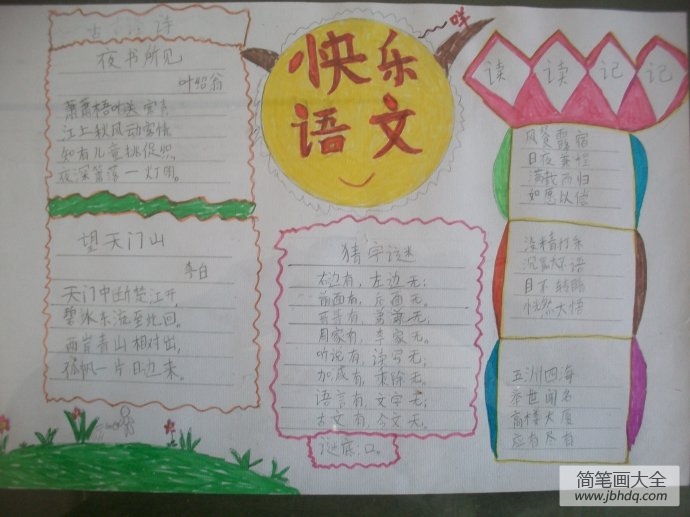 古 诗
夜书所见
叶绍翁
萧萧梧叶送寒声
江上秋风动客情
知有儿童挑促织
夜深篱落一灯明。
望天门山
李白
天门中断楚江开,
碧水东流至此回。
两岸青山相对出,
孤帆一片日边来。
咩
快乐
语文
猜字谜
右边有,左边无;
后面有,前面无。
哥哥有,弟弟无;
周家有,李家无。
听说有,读写无;
加减有,乘除无。
语言有,文字无;
古文有,今文无。
谜底:口。
读 读 记 记
风餐露宿
日夜兼程
满载而归
如愿以偿
没精打采
沉默不语
目不转睛
恍然大悟
五洲四海
举世闻名
高楼大厦
应有尽有
简笔画大全
www.jbhdq.com